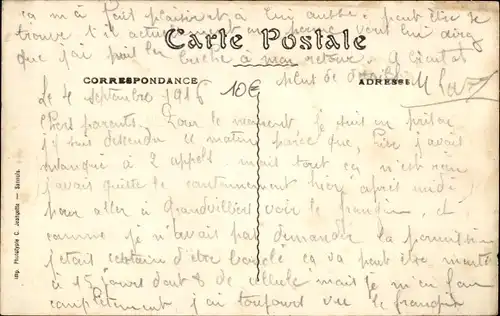 ça m'a fait plaisir et à lui aussi. peut être se
trouve t'il actuellement en perme vous lui direz
que j'ai pris la cuche à mon retour. A bientôt
Carte Postale
plus de détails
CORRESPONDANCE
ADRESSE
10€
Le 4 septembre 1916
Chers parents. Pour le moment je suis en prison
j'y suis descendu ce matin parce que, hier j'avais
manqué à 2 appels mais tout ça n'est rien
j'avais quitté le cantonnement hier après midi
pour aller à Grandvilliers voir le frangin, et
comme je n'avais pas demandé la permission
j'étais certain d'être bouclé ça va peut être monter
à 15 jours dont 8 de cellule mais je m'en fous
complètement j'ai toujours vu le frangin
Imp. Phototypie C. Jeangette — Senuis.